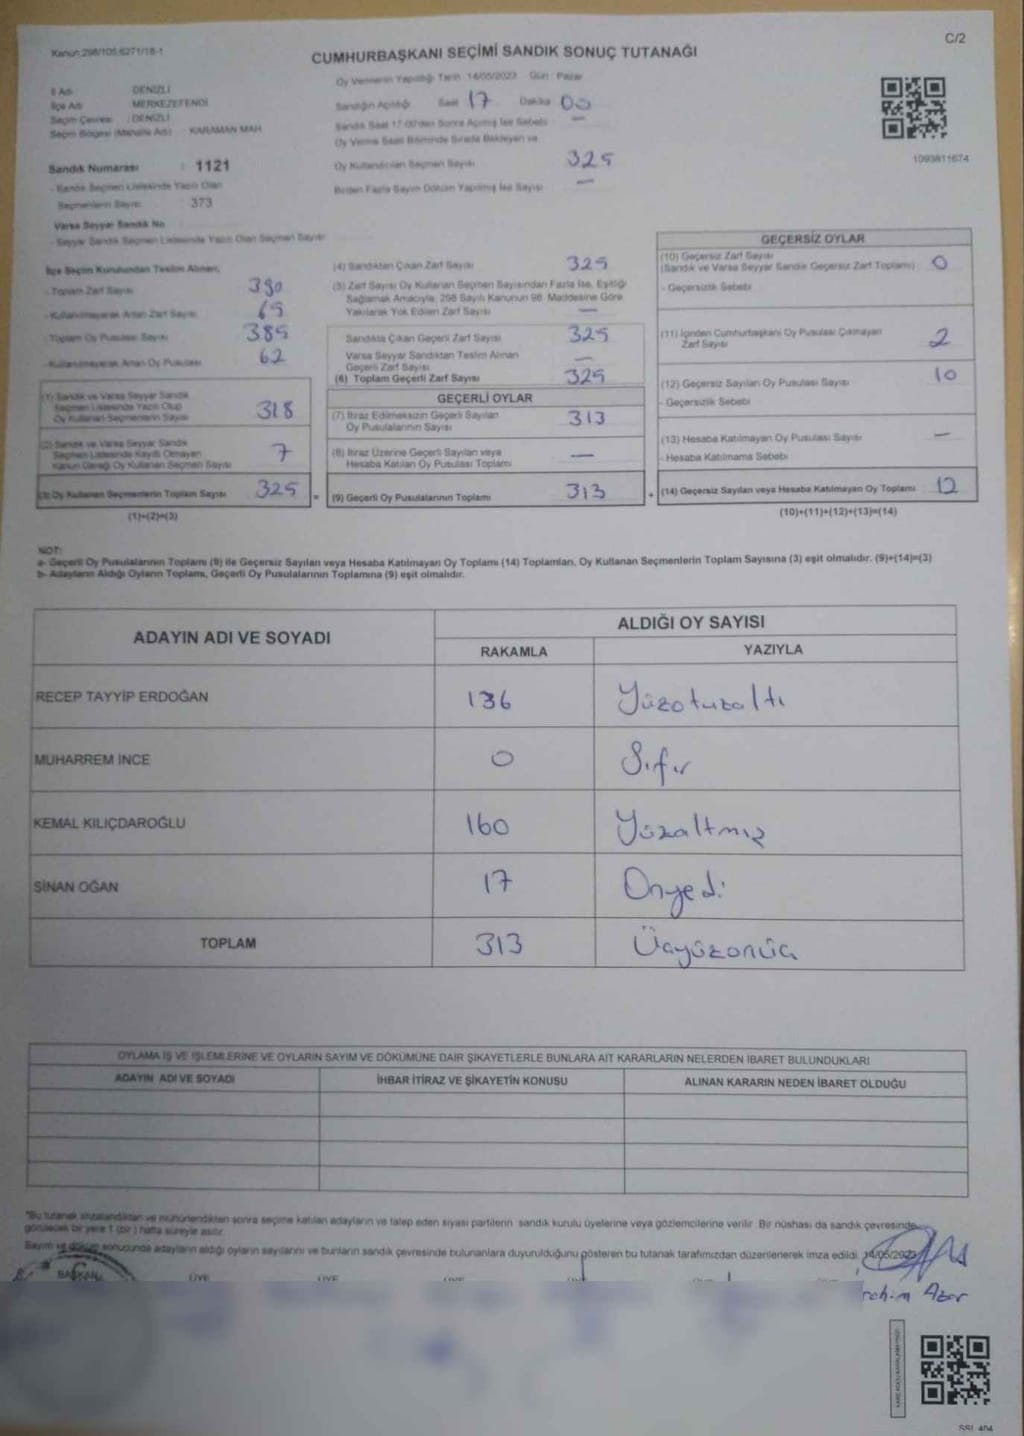 Kanun:298/105,6271/18-1
C/2
CUMHURBAŞKANI SEÇİMİ SANDIK SONUÇ TUTANAĞI
İl Adı : DENİZLİ
İlçe Adı : MERKEZEFENDİ
Seçim Çevresi : DENİZLİ
Seçim Bölgesi (Mahalle Adı) : KARAMAN MAH
Sandık Numarası : 1121
- Sandık Seçmen Listesinde Yazılı Olan
Seçmenlerin Sayısı : 373
Varsa Seyyar Sandık No
- Seyyar Sandık Seçmen Listesinde Yazılı Olan Seçmen Sayısı
Oy Vermenin Yapıldığı Tarih : 14/05/2023 Gün : Pazar
Sandığın Açıldığı Saat 17 Dakika 00
Sandık Saat 17:00'den Sonra Açılmış İse Sebebi —
Oy Verme Saati Bitiminde Sırada Bekleyen ve
Oy Kullandırılan Seçmen Sayısı 325
Birden Fazla Sayım Döküm Yapılmış İse Sayısı —
1093811674
İlçe Seçim Kurulundan Teslim Alınan;
- Toplam Zarf Sayısı 390
- Kullanılmayarak Artan Zarf Sayısı 65
- Toplam Oy Pusulası Sayısı 385
- Kullanılmayarak Artan Oy Pusulası 62
(1) Sandık ve Varsa Seyyar Sandık
Seçmen Listesinde Yazılı Olup
Oy Kullanan Seçmenlerin Sayısı 318
(2) Sandık ve Varsa Seyyar Sandık
Seçmen Listesinde Kaydı Olmayan
Kanun Gereği Oy Kullanan Seçmen Sayısı 7
(3) Oy Kullanan Seçmenlerin Toplam Sayısı 325
(1)+(2)=(3)
(4) Sandıktan Çıkan Zarf Sayısı 325
(5) Zarf Sayısı Oy Kullanan Seçmen Sayısından Fazla İse, Eşitliği
Sağlamak Amacıyla, 298 Sayılı Kanunun 98. Maddesine Göre
Yakılarak Yok Edilen Zarf Sayısı —
Sandıkta Çıkan Geçerli Zarf Sayısı 325
Varsa Seyyar Sandıktan Teslim Alınan
Geçerli Zarf Sayısı —
(6) Toplam Geçerli Zarf Sayısı 325
GEÇERLİ OYLAR
(7) İtiraz Edilmeksizin Geçerli Sayılan
Oy Pusulalarının Sayısı 313
(8) İtiraz Üzerine Geçerli Sayılan veya
Hesaba Katılan Oy Pusulası Toplamı —
= (9) Geçerli Oy Pusulalarının Toplamı 313 +
GEÇERSİZ OYLAR
(10) Geçersiz Zarf Sayısı
(Sandık ve Varsa Seyyar Sandık Geçersiz Zarf Toplamı) 0
- Geçersizlik Sebebi
(11) İçinden Cumhurbaşkanı Oy Pusulası Çıkmayan
Zarf Sayısı 2
(12) Geçersiz Sayılan Oy Pusulası Sayısı 10
- Geçersizlik Sebebi
(13) Hesaba Katılmayan Oy Pusulası Sayısı —
- Hesaba Katılmama Sebebi
(14) Geçersiz Sayılan veya Hesaba Katılmayan Oy Toplamı 12
(10)+(11)+(12)+(13)=(14)
NOT:
a- Geçerli Oy Pusulalarının Toplamı (9) ile Geçersiz Sayılan veya Hesaba Katılmayan Oy Toplamı (14) Toplamları, Oy Kullanan Seçmenlerin Toplam Sayısına (3) eşit olmalıdır. (9)+(14)=(3)
b- Adayların Aldığı Oyların Toplamı, Geçerli Oy Pusulalarının Toplamına (9) eşit olmalıdır.
ADAYIN ADI VE SOYADI
ALDIĞI OY SAYISI
RAKAMLA YAZIYLA
RECEP TAYYİP ERDOĞAN 136 Yüzotuzaltı
MUHARREM İNCE 0 Sıfır
KEMAL KILIÇDAROĞLU 160 Yüzaltmış
SİNAN OĞAN 17 Onyedi
TOPLAM 313 Üçyüzonüç
OYLAMA İŞ VE İŞLEMLERİNE VE OYLARIN SAYIM VE DÖKÜMÜNE DAİR ŞİKAYETLERLE BUNLARA AİT KARARLARIN NELERDEN İBARET BULUNDUKLARI
ADAYIN ADI VE SOYADI İHBAR İTİRAZ VE ŞİKAYETİN KONUSU ALINAN KARARIN NEDEN İBARET OLDUĞU
"Bu tutanak imzalandıktan ve mühürlendikten sonra seçime katılan adayların ve talep eden siyasi partilerin sandık kurulu üyelerine veya gözlemcilerine verilir. Bir nüshası da sandık çevresinde
görülecek bir yere 1 (bir) hafta süreyle asılır.
Sayım ve döküm sonucunda adayların aldığı oyların sayılarını ve bunların sandık çevresinde bulunanlara duyurulduğunu gösteren bu tutanak tarafımızdan düzenlenerek imza edildi. 14/05/2023
BAŞKAN ÜYE ÜYE ÜYE
SSL 404